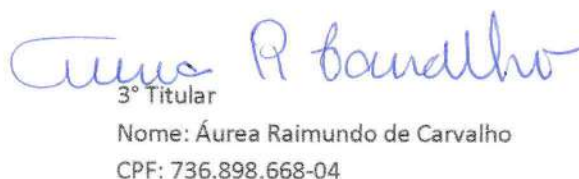 Aurea R Carvalho
3° Titular
Nome: Áurea Raimundo de Carvalho
CPF: 736.898.668-04